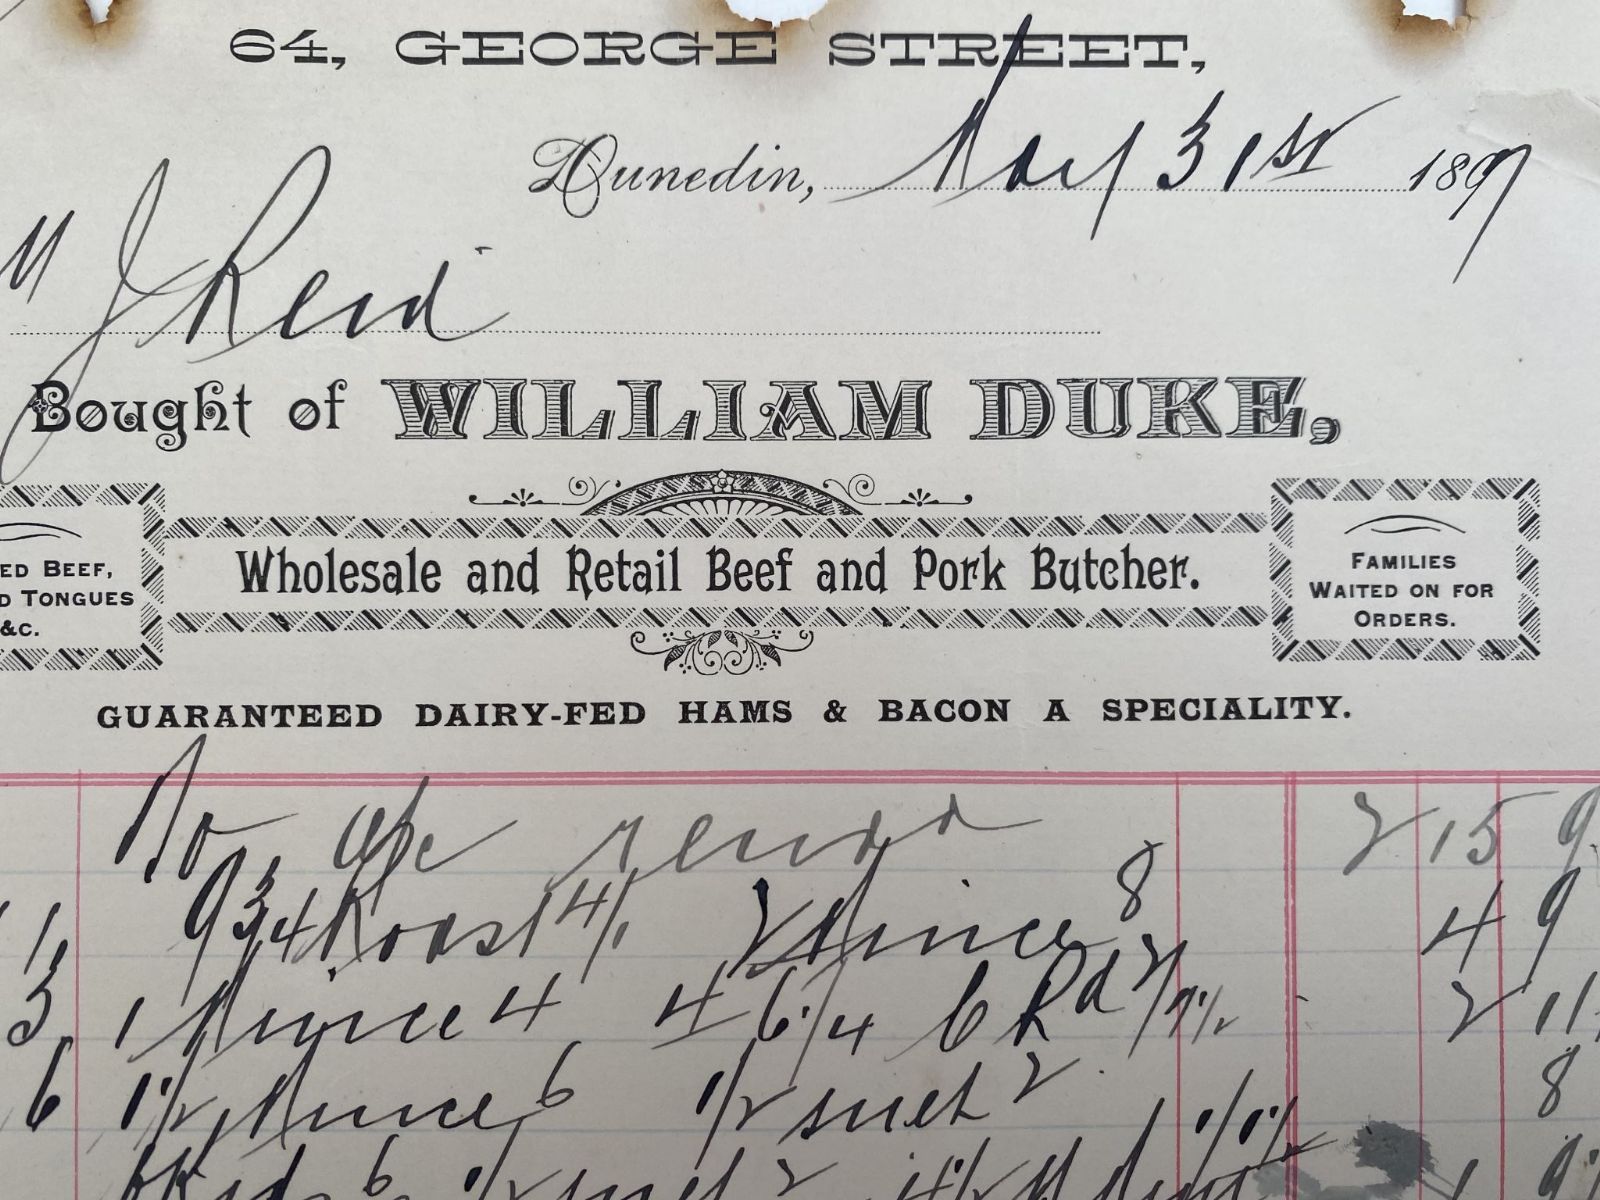 64, GEORGE STREET,
Dunedin, May 31st 1897
M J Reid
Bought of WILLIAM DUKE,
ED BEEF,
D TONGUES
&C.
Wholesale and Retail Beef and Pork Butcher.
FAMILIES
WAITED ON FOR
ORDERS.
GUARANTEED DAIRY-FED HAMS & BACON A SPECIALITY.
To a/c rend 2 15 9
1 9 3/4 Roast 4/1 2 Mince 8 4 9
3 1 Mince 4 4 6/4 C Rd 2/7 1/2 2 11
6 1 1/2 Mince 6 1/2 suet 2 8
6 1/2 suet 2